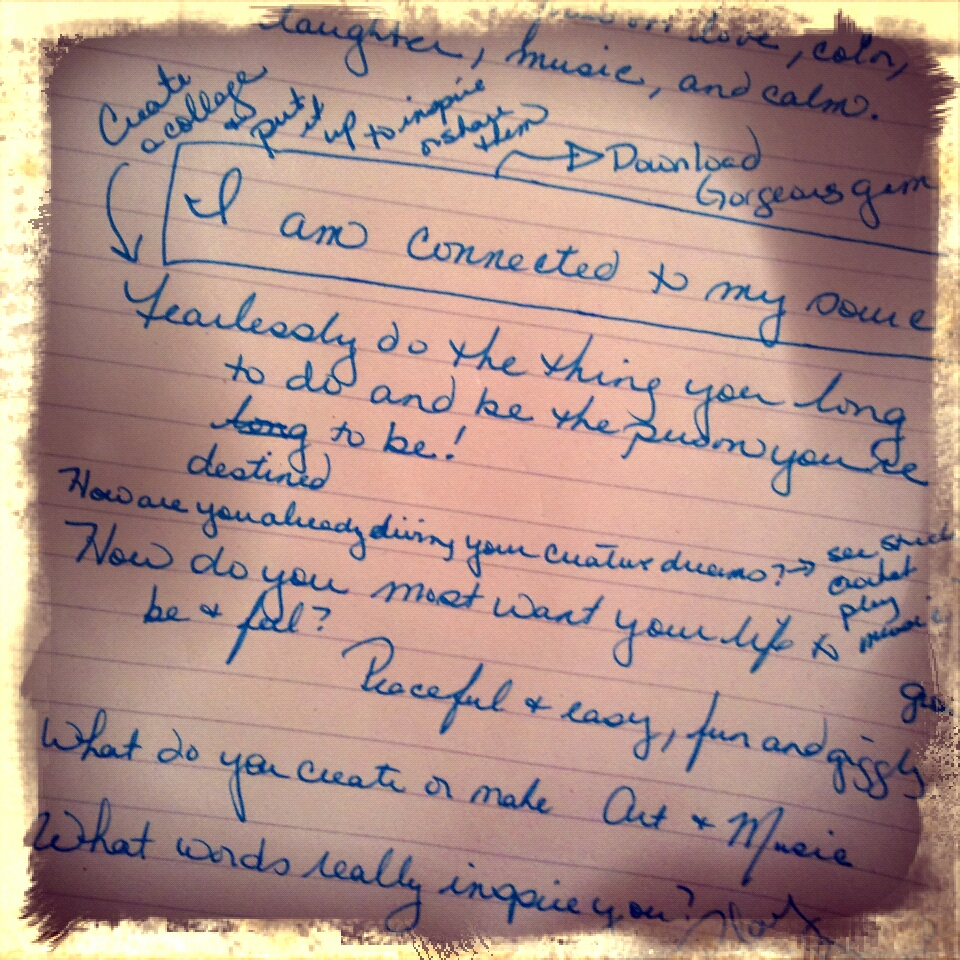 love, color,
laughter, music, and calm.
Create
a collage
& put it up to inspire
or share
them
Download
Gorgeous gem
I am connected to my source
Fearlessly do the thing you long
to do and be the person you're
long to be!
destined
How are you already living your creative dreams? →
crochet
play
music
How do you most want your life to
be & feel?
Peaceful & easy, fun and giggly
What do you create or make Art & Music
What words really inspire you?